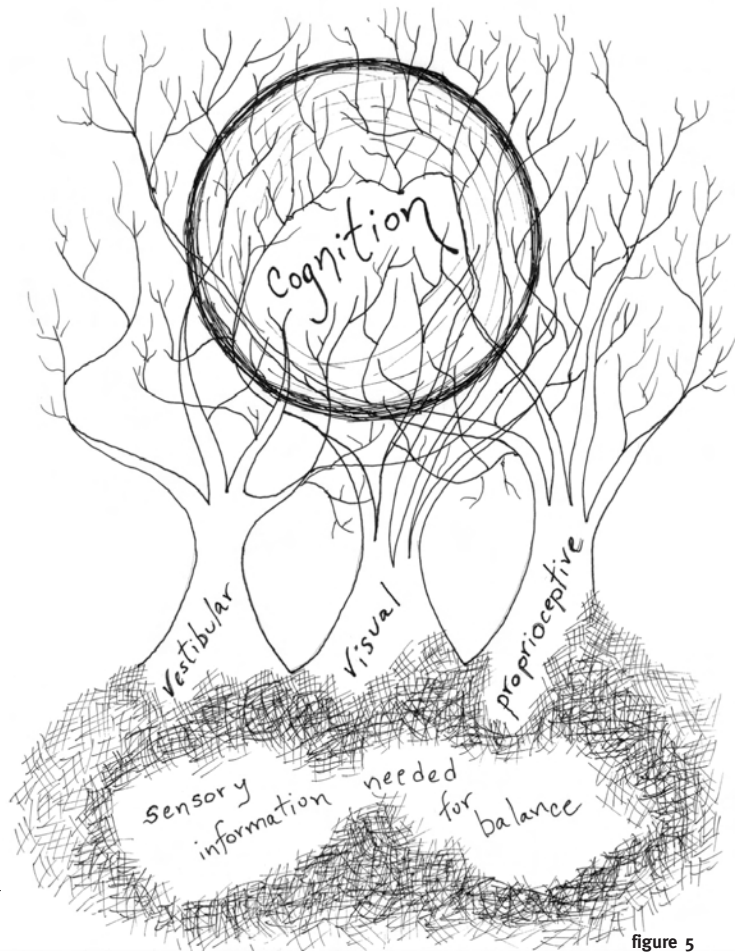 Cognition
vestibular
visual
proprioceptive
sensory
information needed
for
balance
figure 5